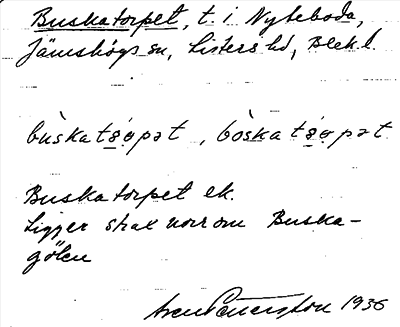 Buskatorpet, t. i Nyteboda,
Jämshögs sn, Listers hd, Blek l.
bùskats̲o̲pət, bòskats̲o̲pət
Buskatorpet ek.
Ligger strax norr om Buska-
gölen
1936